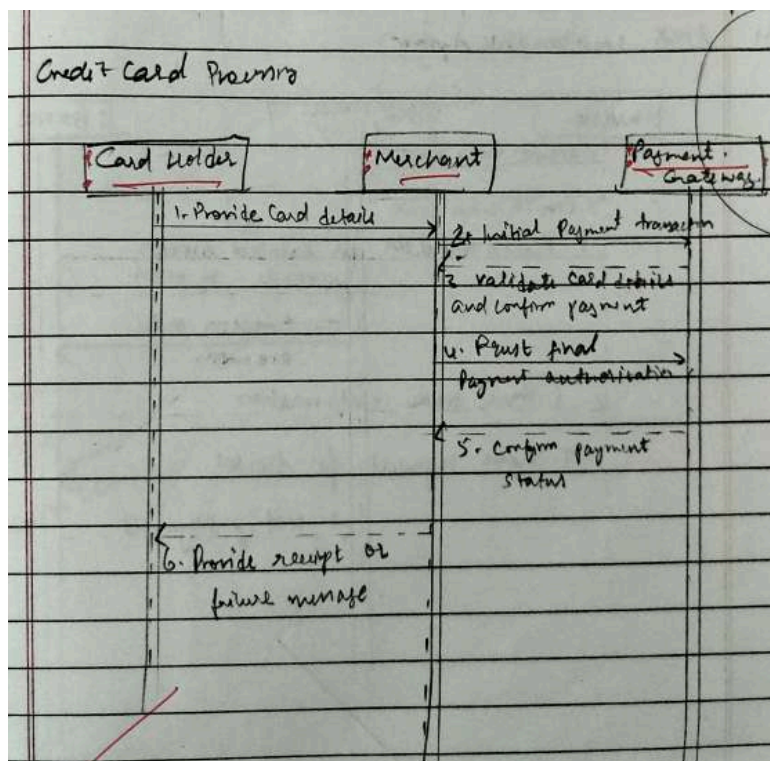 Credit Card Processing
Card Holder
Merchant
Payment
Gateway
1. Provide Card details
2. Initial Payment transaction
3 validate card details
and confirm payment
4. final
Payment authorisation
5. Confirm payment
status
6. Provide receipt or
failure message